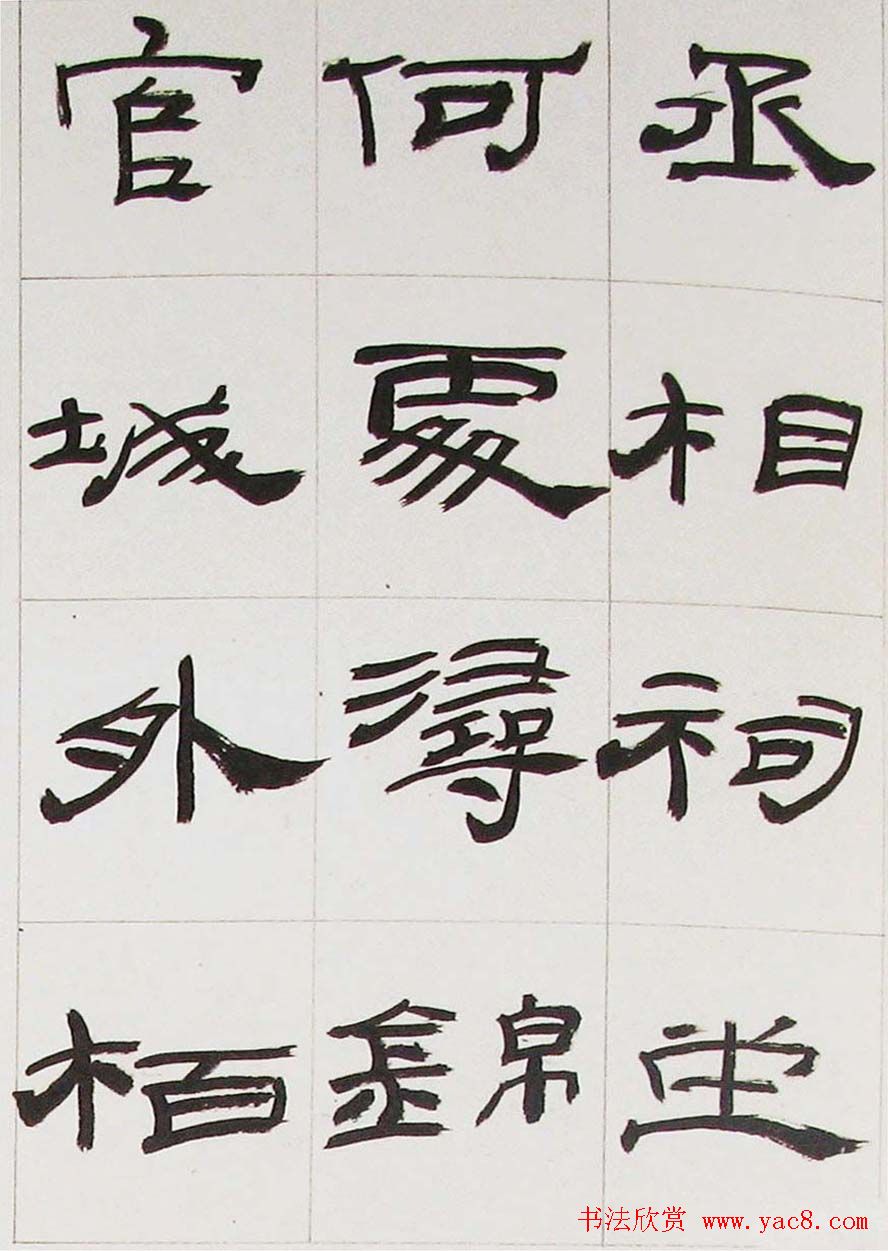 丞相祠堂
何處尋錦
官城外栢
书法欣赏 www.yac8.com